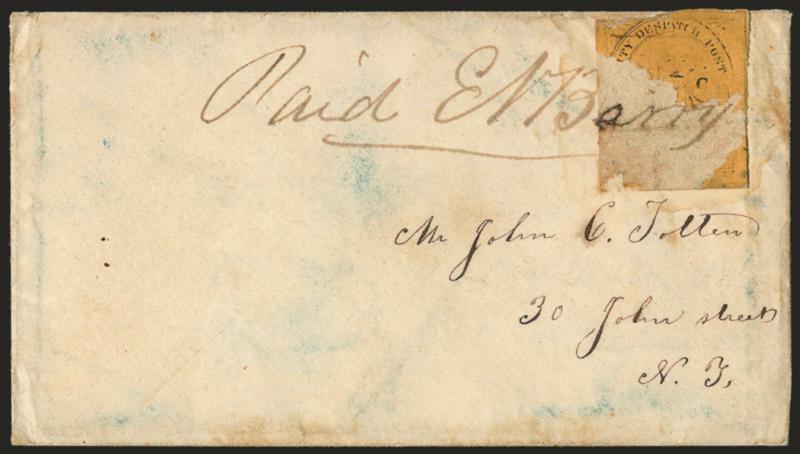 CITY DESPATCH POST
Paid EN Barry
Mr John C. Totten
30 John street
N. Y.